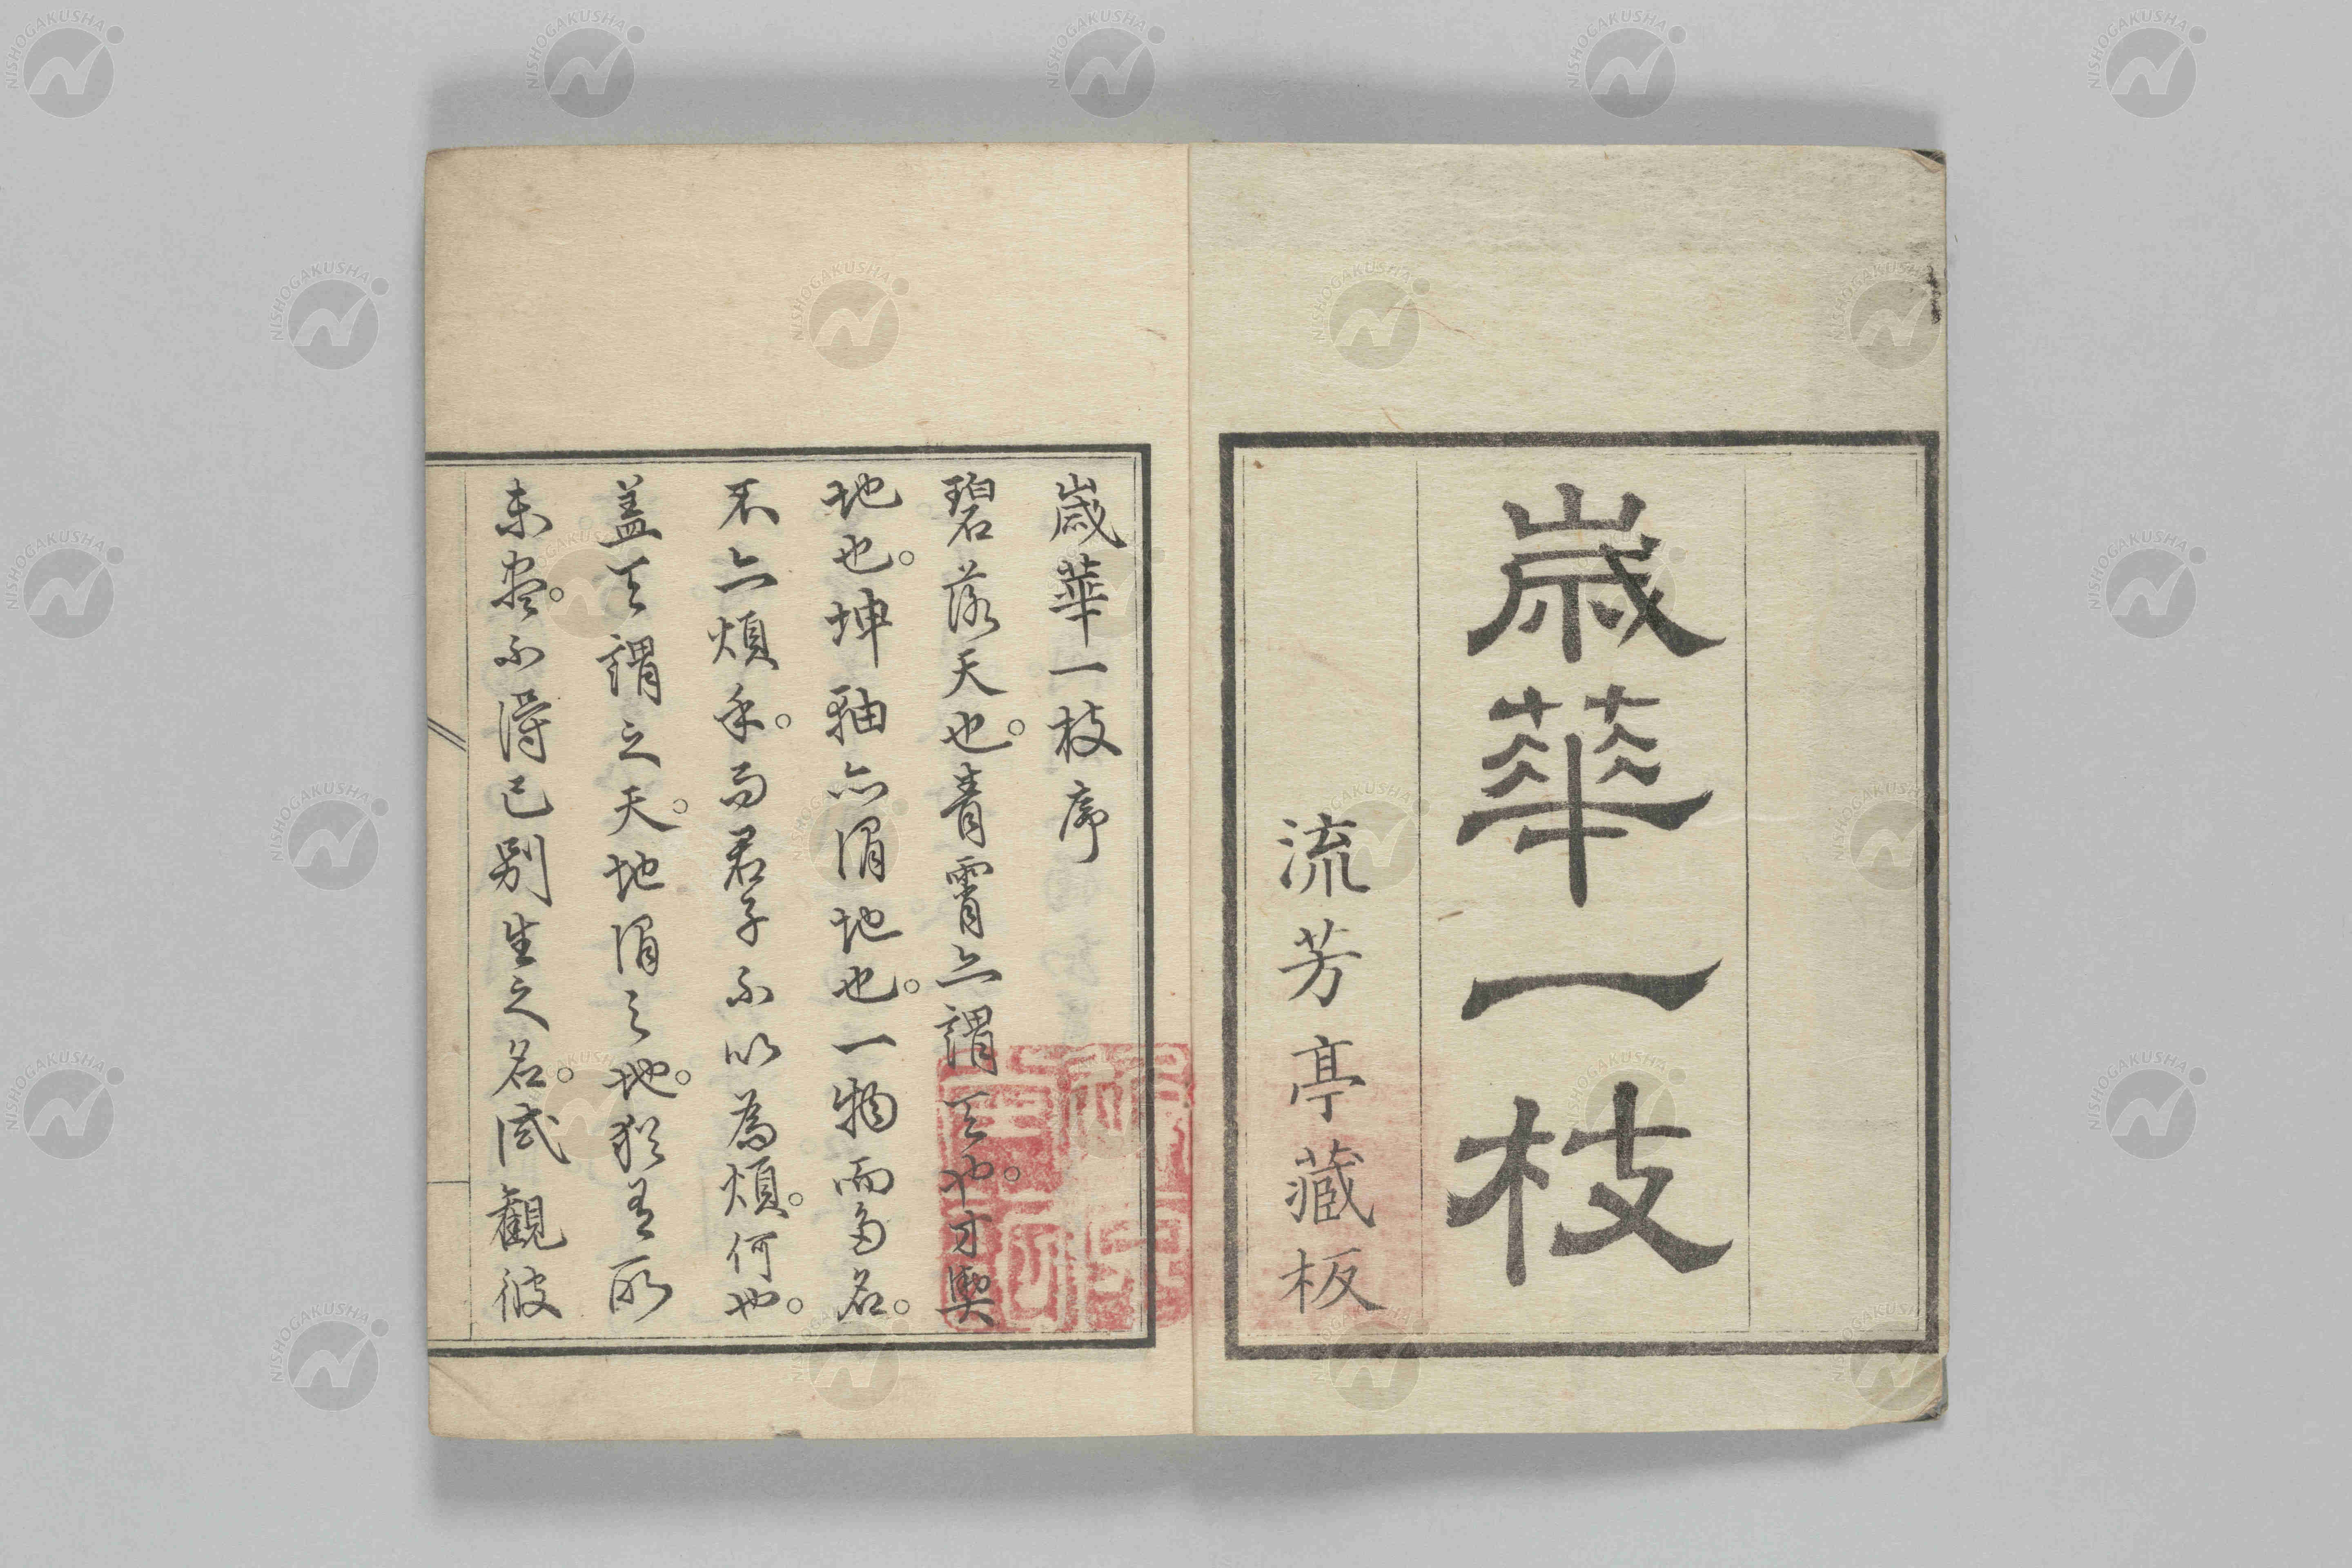 歳華一枝
流芳亭藏板
歳華一枝序
碧落天也。青霄亦謂天也。方輿
地也。坤軸亦謂地也。一物而多名。
不亦煩乎。而君子不以為煩。何也。
蓋天謂之天。地謂之地。猶有所
未盡。不得已別生之名。試觀彼
NISHOGAKUSHA